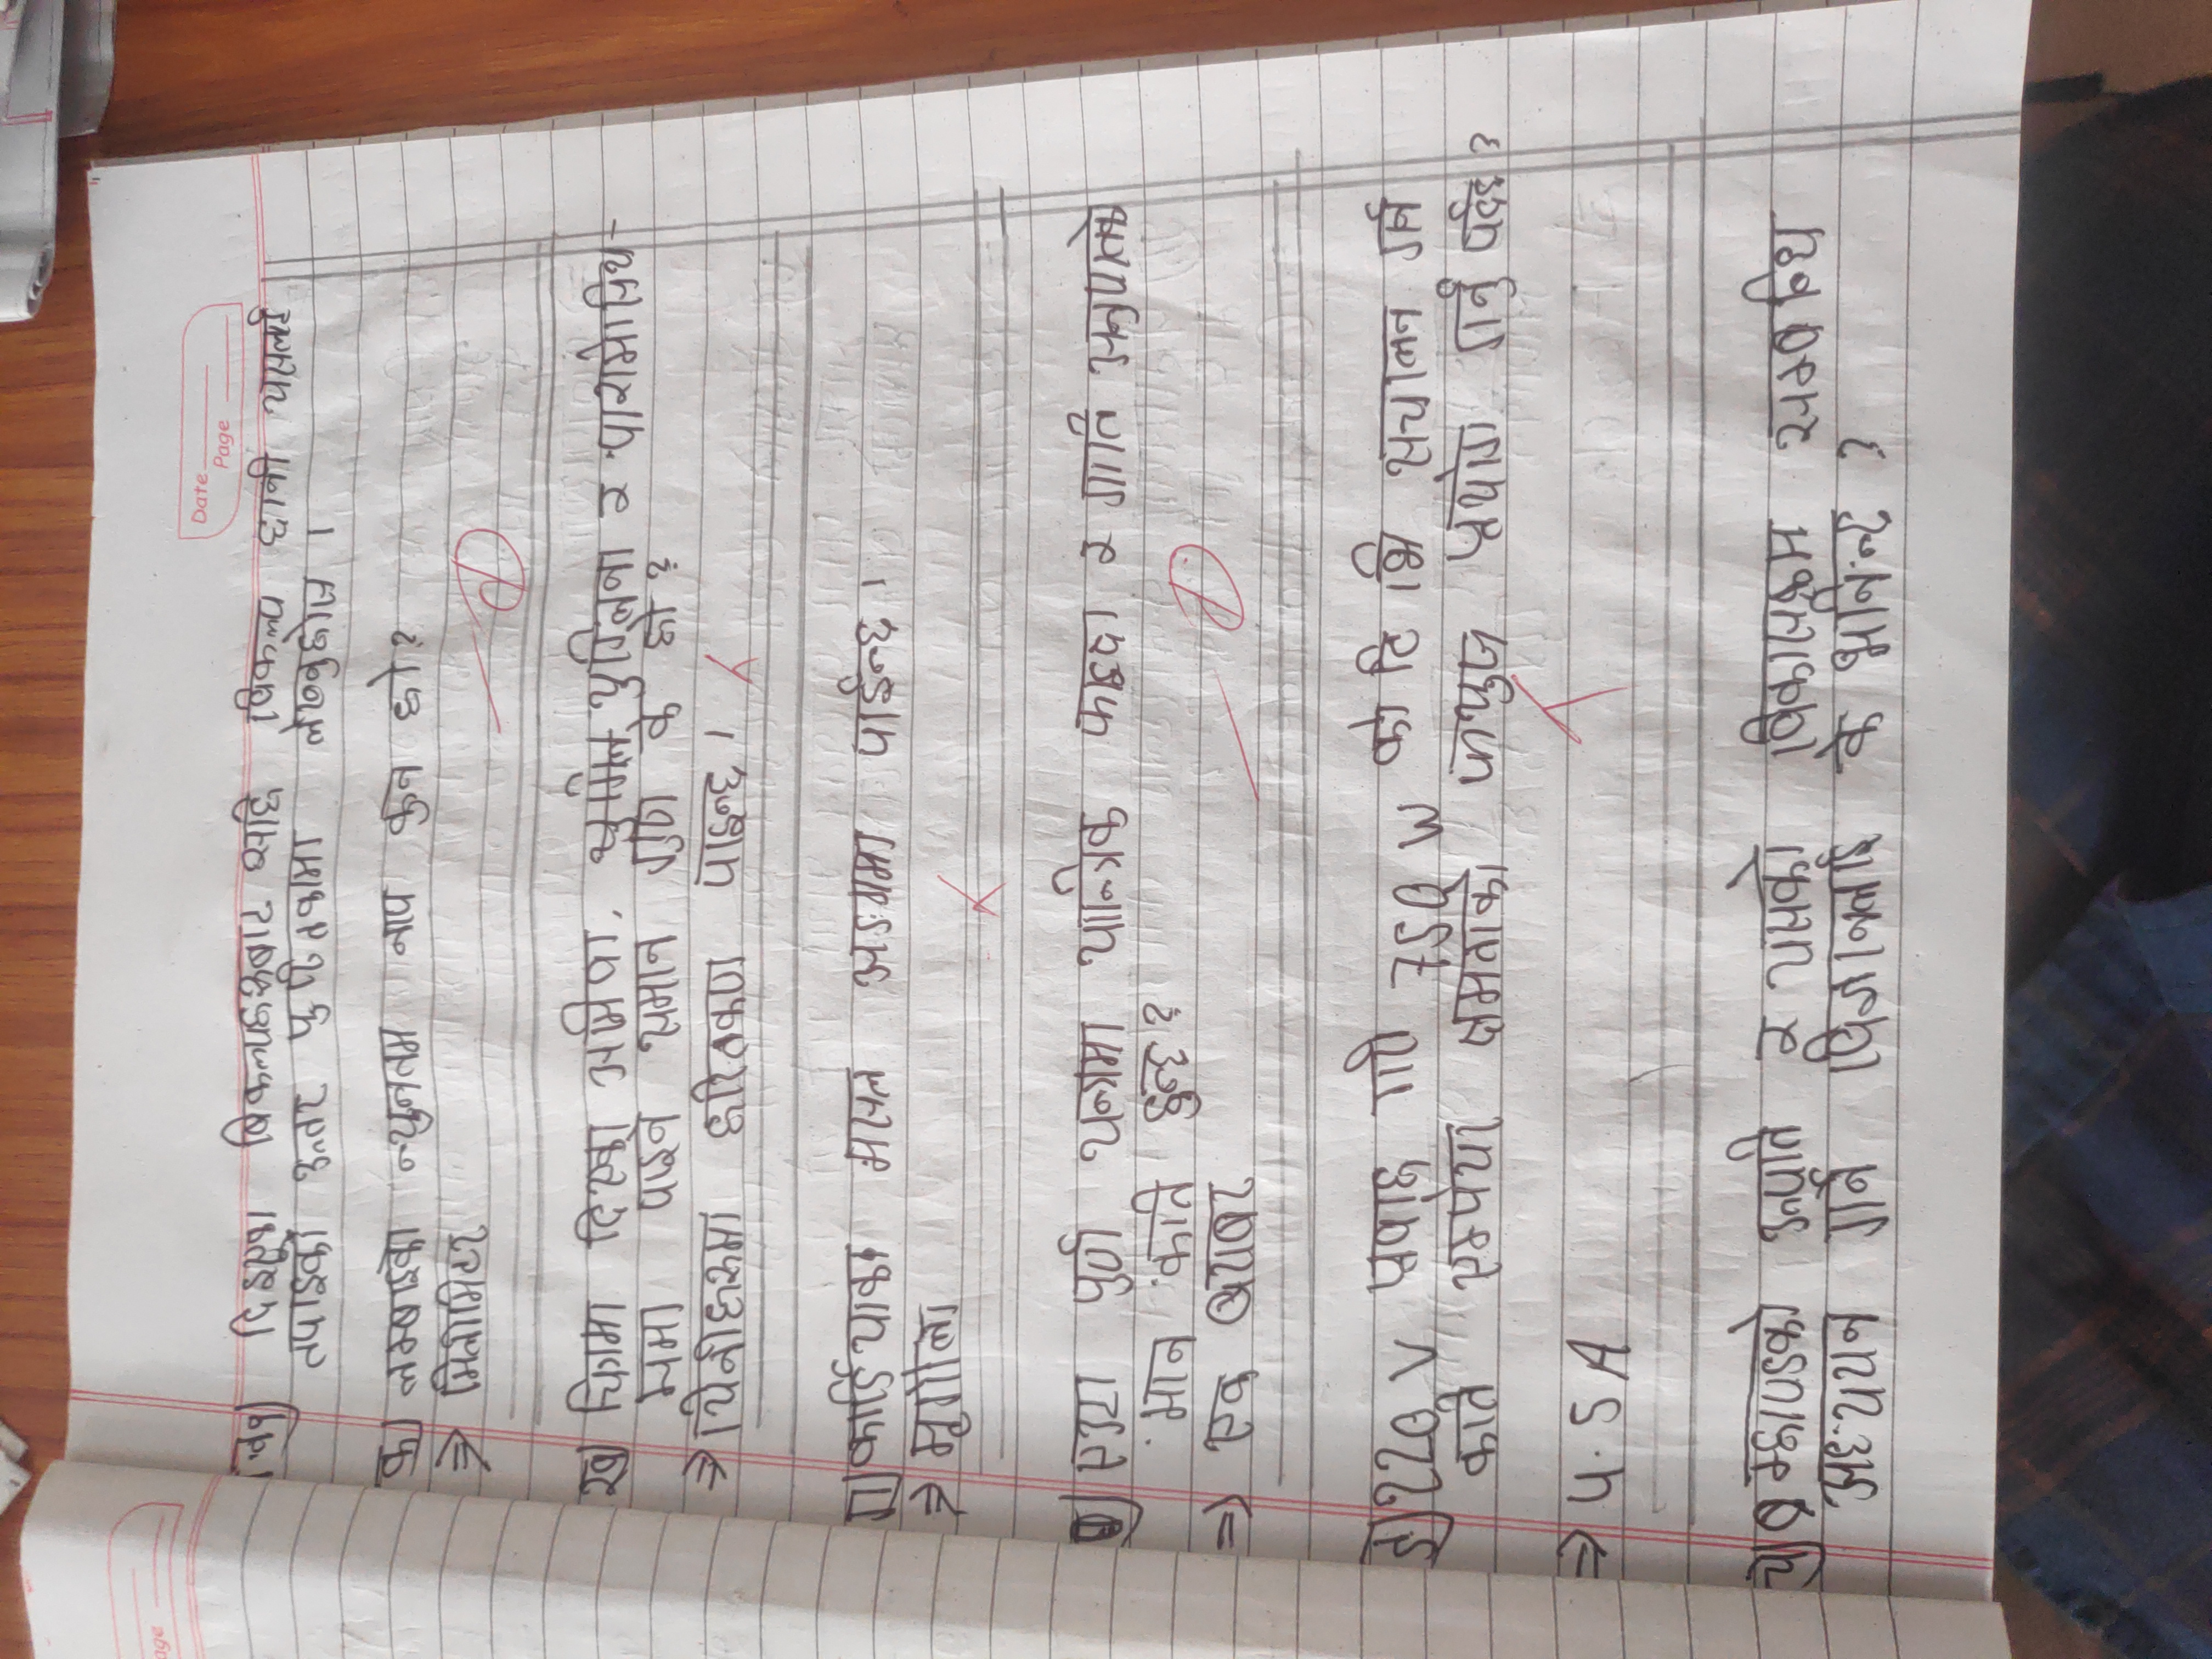 Date
Page
age
दिइएका बिकल्पहरुबाट सहि विकल्प छानी यसलाई
तपाइको उत्तर पुस्तिकामा लेख्नुहोस ।
क) लम्बाइको न्युनतम नाप कुन हो?
⇒ मिलीमिटर
ख) चित्रमा दिएका अमिवा, युग्लिना र पारामोसिय
ममा पाइने समान गुण के हो?
⇒ यिनीहरुमा हरितकण पाइन्छ ।
ग) कार्डियाक मसल अङगमा पाईन्छ ।
⇒ मृगौला
घ) एउटा पुर्ण यन्त्रमा यान्त्रिक फाइदा र गति अनुपातको
मान कति हुन्छ?
⇒ एक बराबर
ङ) 220 V प्रवाह गरी 750 W को टि भि संचालन गर्न
कति एम्पियर क्षमताको फ्युज प्रयोग गर्नु पर्दछ?
⇒ 4.5 A
च) ब्रम्हाण्डको उत्पति र यसको विकासक्रम सम्बन्धि
अध्ययन गर्ने विज्ञानलाई के भनिन्छ ?